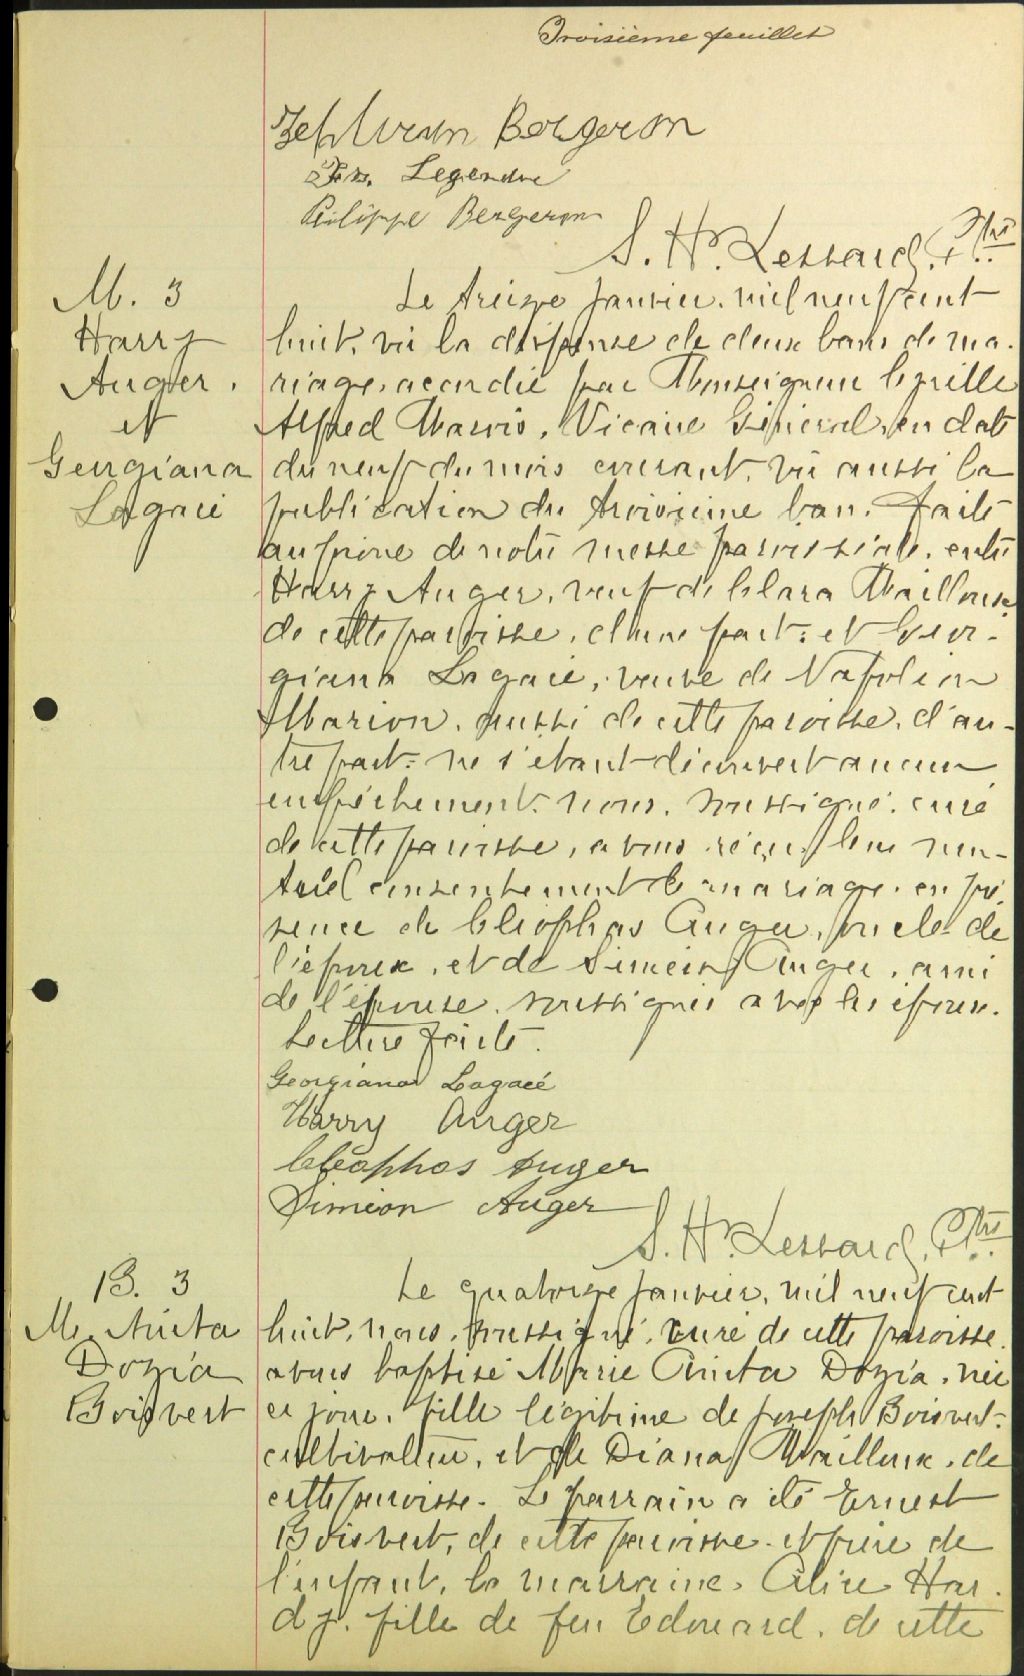 Troisième feuillet
Zephirin Bergeron
Legendre
Philippe Bergeron
S. H. Lessard, Ptre
M. 3
Harry
Auger.
et
Georgiana
Lagacé
Le treize janvier, mil neuf cent
huit, vû la dispense de deux bans de ma-
riage, accordée par Monseigneur Cyrille
Alfred Marois, Vicaire Général, en date
du neuf du mois courant, vû aussi la
publication du troisième ban, faite
au prône de notre messe paroissiale, entre
Harry Auger, veuf de Clara Mailloux
de cette paroisse, d'une part; et Geor-
giana Lagacé, veuve de Napoléon
Marion, aussi de cette paroisse, d'au-
tre part; ne s'étant découvert aucun
empêchement, nous, soussigné, curé
de cette paroisse, avons reçu leur mu-
tuel consentement de mariage, en pré-
sence de Cléophas Auger, oncle de
l'époux, et de Siméon Auger, ami
de l'épouse, soussignés avec les époux.
Lecture faite.
Georgiana Lagacé
Harry Auger
Cléophas Auger
Siméon Auger
S. H. Lessard, Ptre
B. 3
M. Anita
Dozia
Boisvert
Le quatorze janvier, mil neuf cent
huit, nous, soussigné, curé de cette paroisse,
avons baptisé Marie Anita Dozia, née
ce jour, fille légitime de Joseph Boisvert,
cultivateur, et de Diana Mailloux, de
cette paroisse. Le parrain a été Ernest
Boisvert, de cette paroisse, et frère de
l'enfant, la marraine, Alice Har-
dy, fille de feu Edouard, de cette